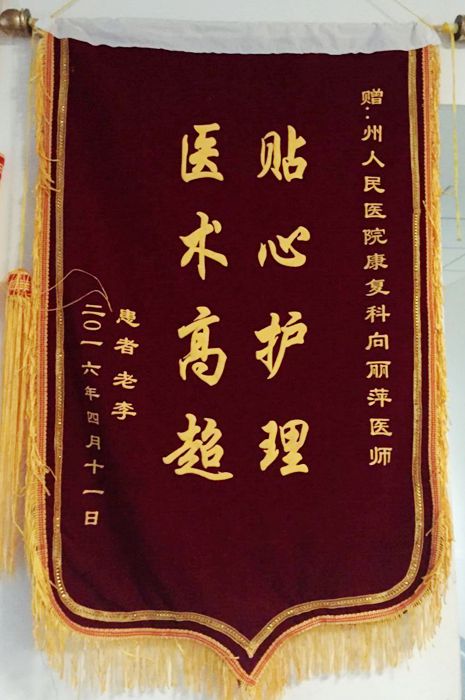 赠:州人民医院康复科向丽萍医师
贴心护理
医术高超
患者老李
二〇一六年四月十一日